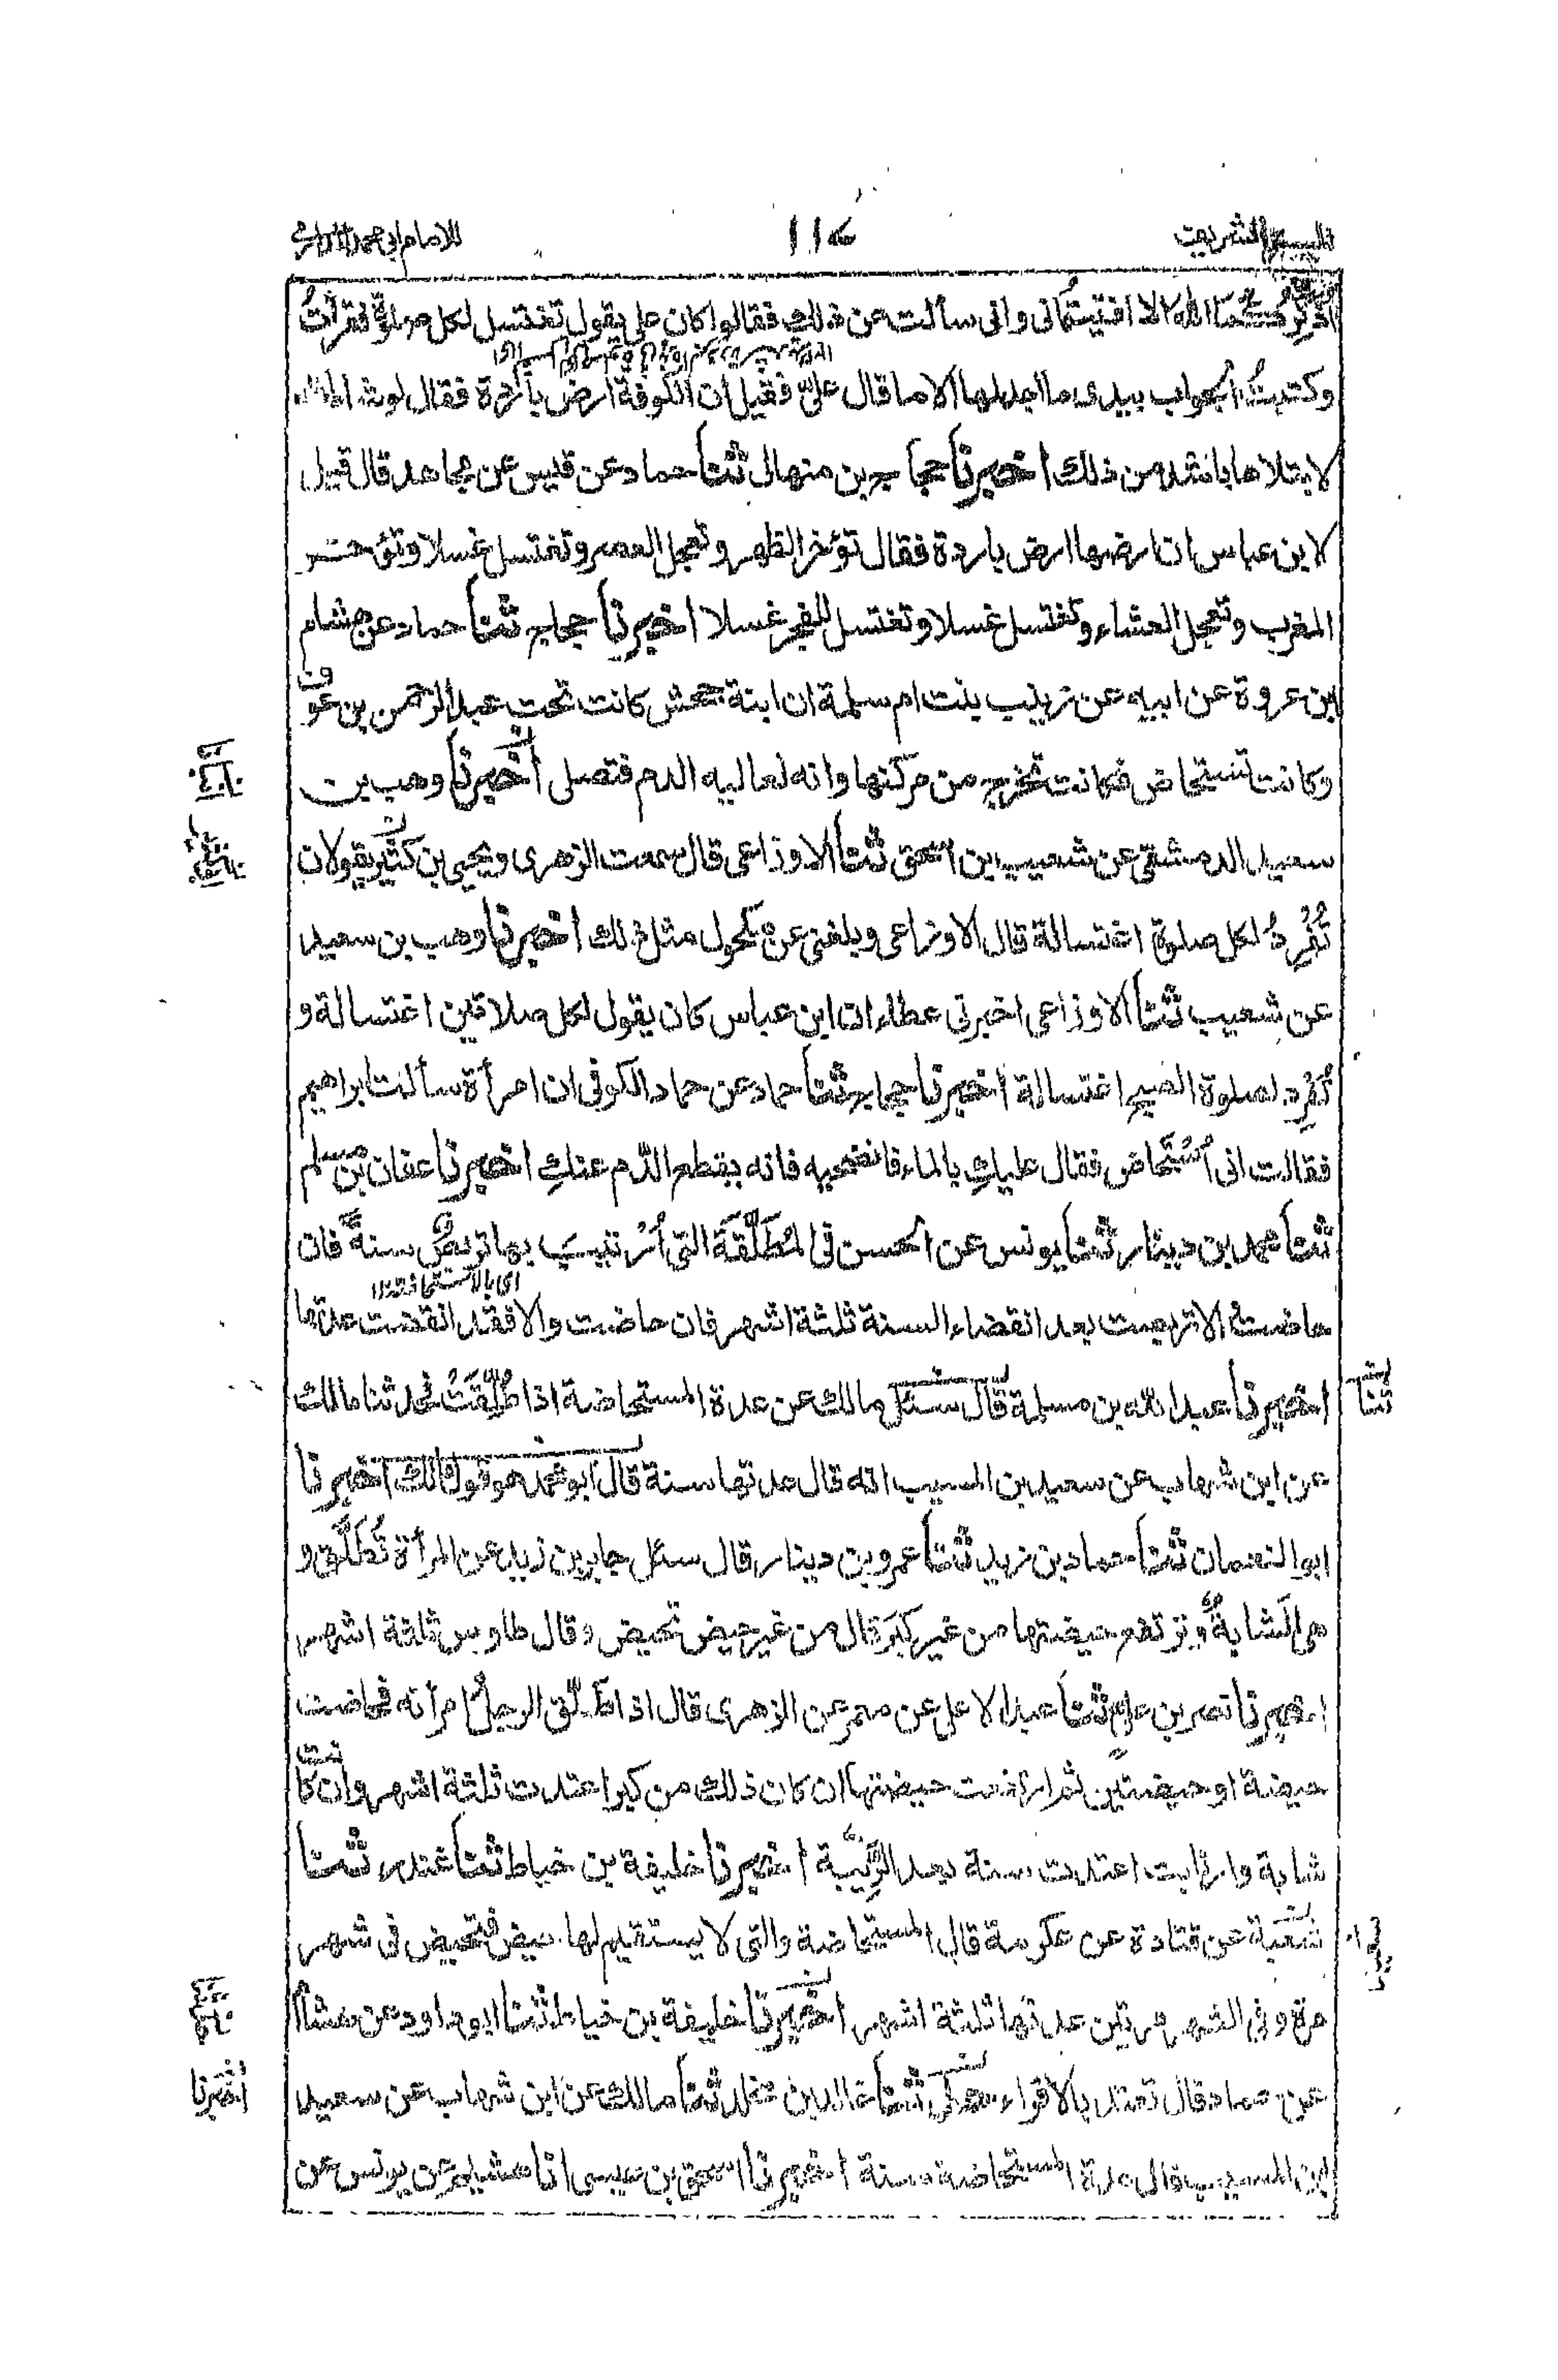 للامام ابي محمد الدارمي
اذكركما الله الا افتيتماني واني سألت عن ذلك فقالوا كان علي يقول تغتسل لكل صلوة فقرأتُ
وكتبتُ الجواب بيدي ما اجد لها الا ما قال عليٌّ فقيل ان الكوفة ارض باردة فقال لو شاء الله
لابتلاها باشد من ذلك اخبرنا حجاج بن منهال ثنا حماد عن قيس عن مجاهد قال قيل
لابن عباس ان ارضها ارض باردة فقال تؤخر الظهر وتعجل العصر وتغتسل غسلا وتؤخر
المغرب وتعجل العشاء وتغتسل غسلا وتغتسل للفجر غسلا اخبرنا حجاج ثنا حماد عن هشام
ابن عروة عن ابيه عن زينب بنت ام سلمة ان ابنة جحش كانت تحت عبد الرحمن بن عوف
وكانت تستحاض فكانت تخرج من مركنها وانه لعاليه الدم فتصلي اخبرنا وهب بن
سعيد الدمشقي عن شعيب بن اسحق ثنا الاوزاعي قال سمعت الزهري ويحيى بن كثير يقولان
تُفْرِدُ لكل صلوة اغتسالة قال الاوزاعي وبلغني عن مكحول مثل ذلك اخبرنا وهب بن سعيد
عن شعيب ثنا الاوزاعي اخبرني عطاء ان ابن عباس كان يقول لكل صلاتين اغتسالة و
تُفْرِد لصلوة الصبح اغتسالة اخبرنا حجاج ثنا حماد عن حماد الكوفي ان امرأة سألت ابراهيم
فقالت اني أُسْتَحاض فقال عليكِ بالماء فانضحيه فانه يقطع الدّم عنكِ اخبرنا عفان بن مسلم
ثنا محمد بن دينار ثنا يونس عن الحسن في المُطَلَّقَة التي اُرْتيبَ بها تربصُ سنةً فان
اي بالاستحاضة
حاضتْ والا تربصت بعد انقضاء السنة ثلثة اشهر فان حاضت والا فقد انقضت عدتها
اخبرنا عبد الله بن مسلمة قال سئل مالك عن عدة المستحاضة اذا طُلِّقَتْ فحدثنا مالك
ثنا
عن ابن شهاب عن سعيد بن المسيب انه قال عدتها سنة قال ابو محمد هو قول مالك اخبرنا
ابو النعمان ثنا حماد بن زيد ثنا عمرو بن دينار قال سئل جابر بن زيد عن المرأة تُطَلَّق و
هي الشابة وترتفع حيضتها من غير كِبَر قال من غير حيض تحيض وقال طاوس ثلثة اشهر
اخبرنا نصر بن علي ثنا عبد الاعلى عن معمر عن الزهري قال اذا طَلّق الرجلُ امرأته فحاضت
حيضة او حيضتين ثم ارتفعت حيضتها ان كان ذلك من كبر اعتدت ثلثة اشهر وان كانت
شابة وارتابت اعتدت سنة بعد الرِّيبة اخبرنا خليفة بن خياط ثنا غندر ثنا
شعبة عن قتادة عن عكرمة قال المستحاضة والتي لا يستقيم لها حيض فتحيض في شهر
مرة وفي الشهر مرتين عدتها ثلثة اشهر اخبرنا خليفة بن خياط ثنا ابو داود عن هشام
عن حماد قال تعتد بالاقراء ثنا خالد بن مخلد ثنا مالك عن ابن شهاب عن سعيد
اخبرنا
ابن المسيب قال عدة المستحاضة سنة اخبرنا اسحق بن عيسى انا هشيم عن يونس عن